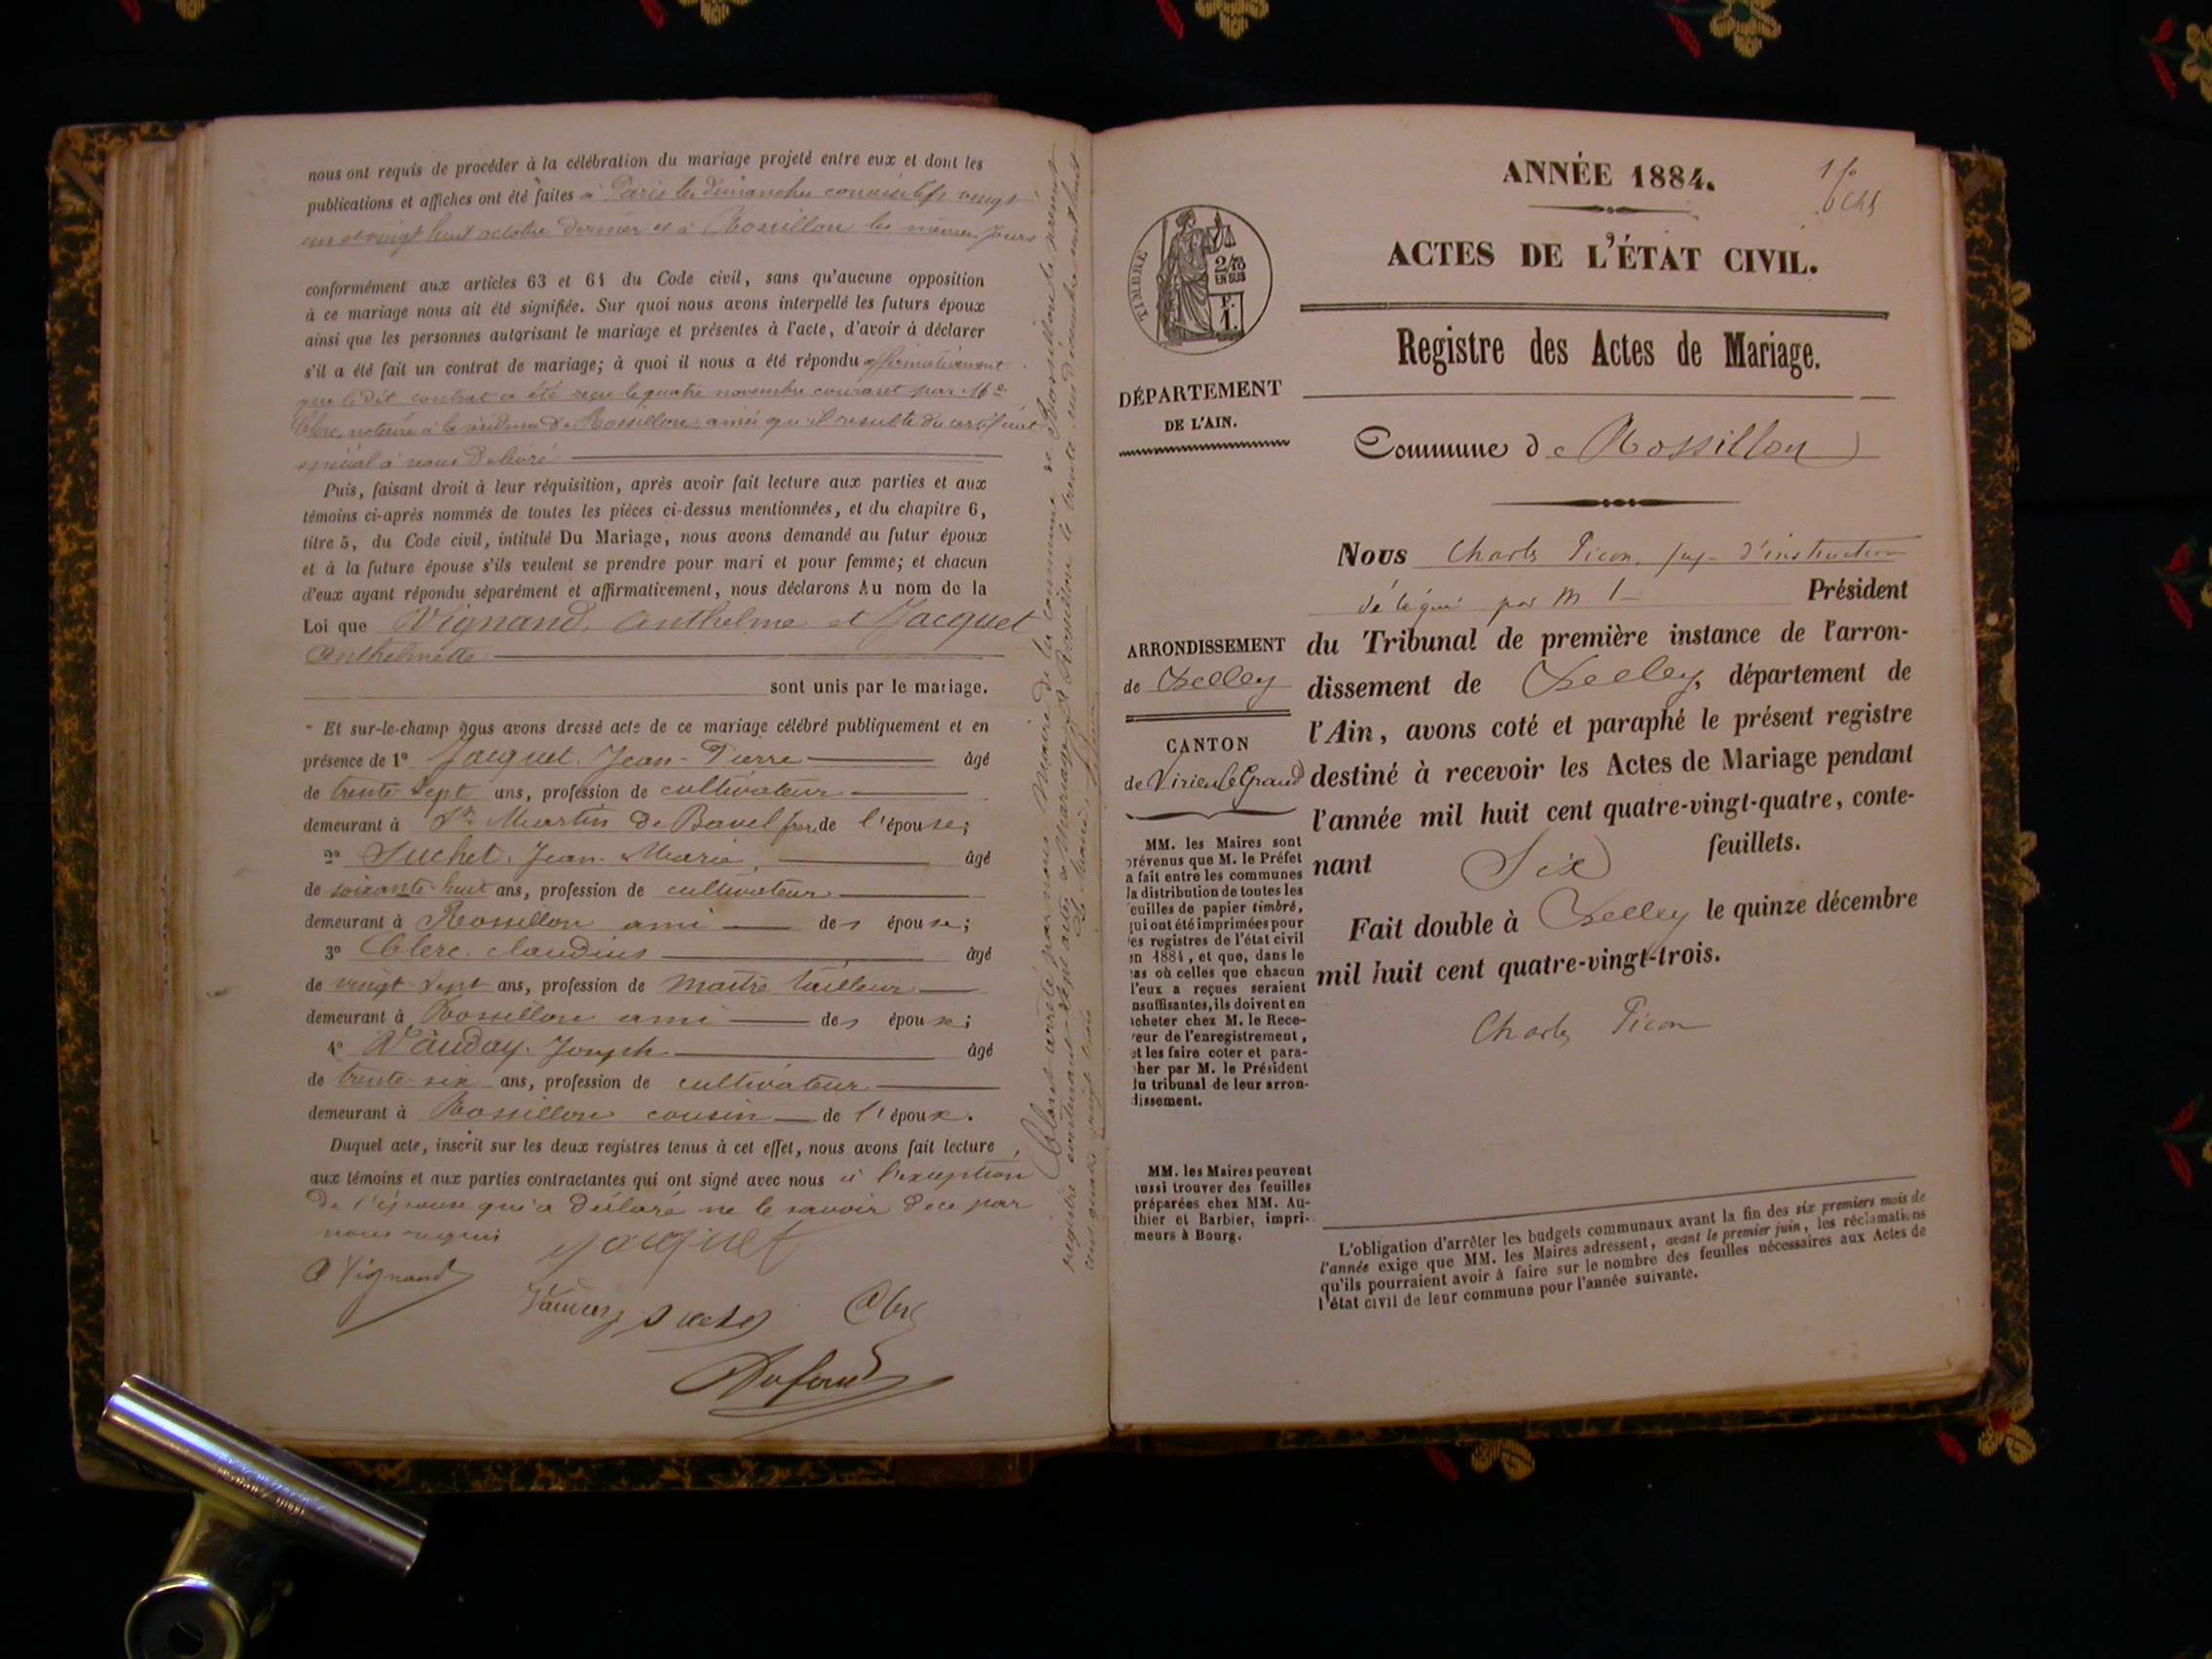 nous ont requis de procéder à la célébration du mariage projeté entre eux et dont les
publications et affiches ont été faites à Paris les dimanches consécutifs vingt
un et vingt huit octobre dernier et à Rossillon les mêmes jours
conformément aux articles 63 et 64 du Code civil, sans qu'aucune opposition
à ce mariage nous ait été signifiée. Sur quoi nous avons interpellé les futurs époux
ainsi que les personnes autorisant le mariage et présentes à l'acte, d'avoir à déclarer
s'il a été fait un contrat de mariage; à quoi il nous a été répondu affirmativement
que le dit contrat a été reçu le quatre novembre courant par Me
notaire à la résidence de Rossillon ainsi qu'il resulte du certificat
spécial à nous délivré
Puis, faisant droit à leur réquisition, après avoir fait lecture aux parties et aux
témoins ci-après nommés de toutes les pièces ci-dessus mentionnées, et du chapitre 6,
titre 5, du Code civil, intitulé Du Mariage, nous avons demandé au futur époux
et à la future épouse s'ils veulent se prendre pour mari et pour femme; et chacun
d'eux ayant répondu séparément et affirmativement, nous déclarons Au nom de la
Loi que Vignand, Anthelme et Jacquet
Anthelmette
sont unis par le mariage.
Et sur-le-champ nous avons dressé acte de ce mariage célébré publiquement et en
présence de 1º Jacquet, Jean-Pierre âgé
de trente sept ans, profession de cultivateur
demeurant à St Martin de Bavel frère de l'épouse;
2º Suchet, Jean-Marie, âgé
de soixante-huit ans, profession de cultivateur
demeurant à Rossillon ami des épouse;
3º Clerc, Claudius âgé
de vingt-sept ans, profession de maître tailleur
demeurant à Rossillon ami des épouse;
4º Vauday, Joseph âgé
de trente-six ans, profession de cultivateur
demeurant à Rossillon cousin de l'époux.
Duquel acte, inscrit sur les deux registres tenus à cet effet, nous avons fait lecture
aux témoins et aux parties contractantes qui ont signé avec nous à l'exception
de l'épouse qui a déclaré ne le savoir de ce par
nous requis
Jacquet
A Vignand
Clos et arrêté par nous Maire de la commune de Rossillon le présent
registre contenant sept actes de Mariage à Rossillon le trente un décembre mil huit
cent quatre vingt trois
Le Maire,
ANNÉE 1884.
1 fo
ACTES DE L'ÉTAT CIVIL.
TIMBRE
2/10
EN SUS
F.
1.
Registre des Actes de Mariage.
DÉPARTEMENT
DE L'AIN.
Commune de Rossillon
Nous Charles Picon, juge d'instruction
délégué par M le Président
du Tribunal de première instance de l'arron-
dissement de Belley, département de
l'Ain, avons coté et paraphé le présent registre
destiné à recevoir les Actes de Mariage pendant
l'année mil huit cent quatre-vingt-quatre, conte-
nant Six feuillets.
Fait double à Belley le quinze décembre
mil huit cent quatre-vingt-trois.
Charles Picon
ARRONDISSEMENT
de Belley
CANTON
de Virieu le Grand
MM. les Maires sont
prévenus que M. le Préfet
a fait entre les communes
la distribution de toutes les
feuilles de papier timbré,
qui ont été imprimées pour
les registres de l'état civil
en 1884, et que, dans le
cas où celles que chacun
d'eux a reçues seraient
insuffisantes, ils doivent en
acheter chez M. le Rece-
veur de l'enregistrement,
et les faire coter et para-
pher par M. le Président
du tribunal de leur arron-
dissement.
MM. les Maires peuvent
aussi trouver des feuilles
préparées chez MM. Au-
thier et Barbier, impri-
meurs à Bourg.
L'obligation d'arrêter les budgets communaux avant la fin des six premiers mois de
l'année exige que MM. les Maires adressent, avant le premier juin, les réclamations
qu'ils pourraient avoir à faire sur le nombre des feuilles nécessaires aux Actes de
l'état civil de leur commune pour l'année suivante.